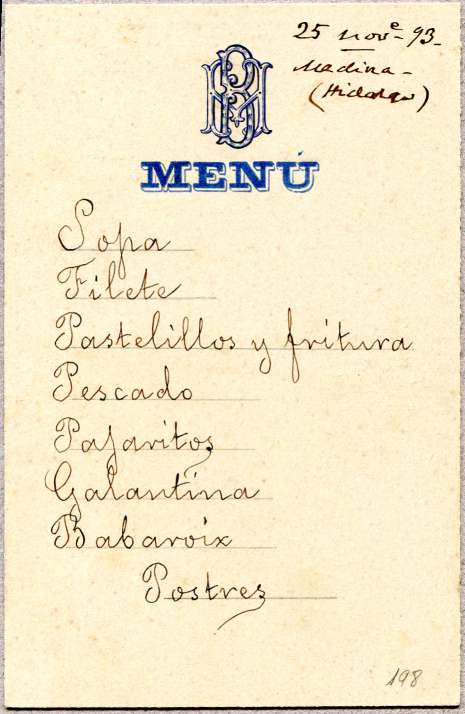 25 Nove. 93.
Medina -
(Hidalgo)
MENÚ
Sopa
Filete
Pastelillos y fritura
Pescado
Pajaritos
Galantina
Babaroix
Postres
198